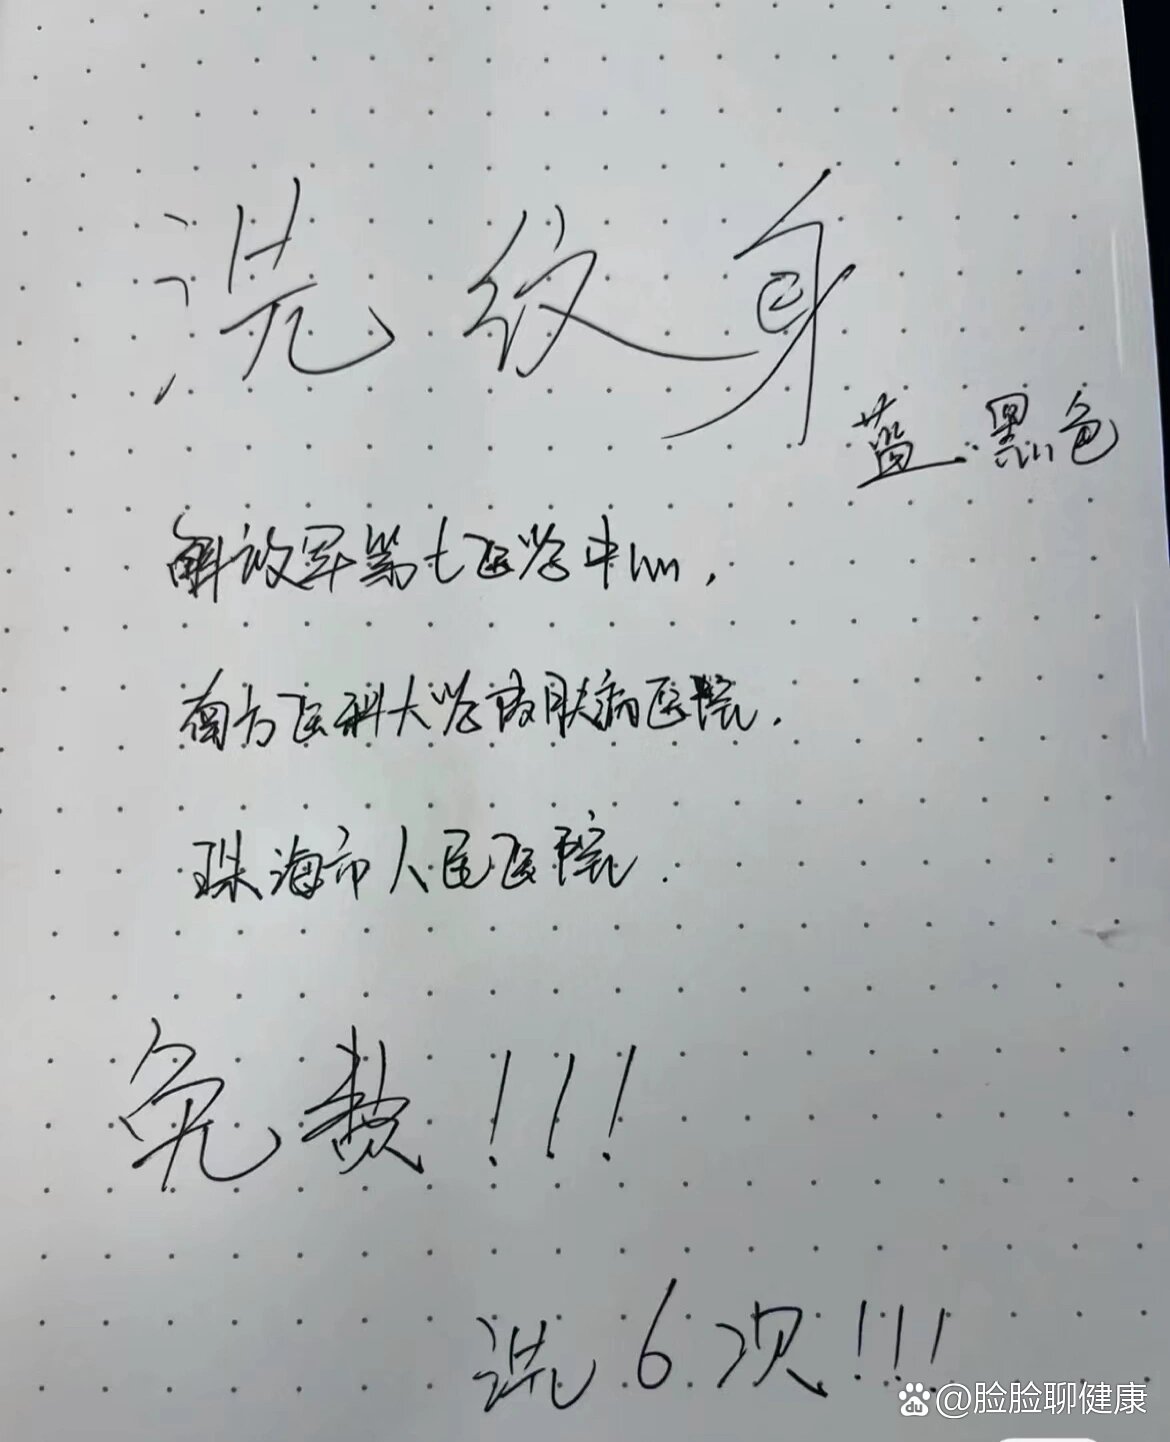 洗纹身
蓝.黑色
解放军第七医学中心,
南方医科大学皮肤病医院,
珠海市人民医院.
免费!!!
洗6次!!!
@脸脸聊健康